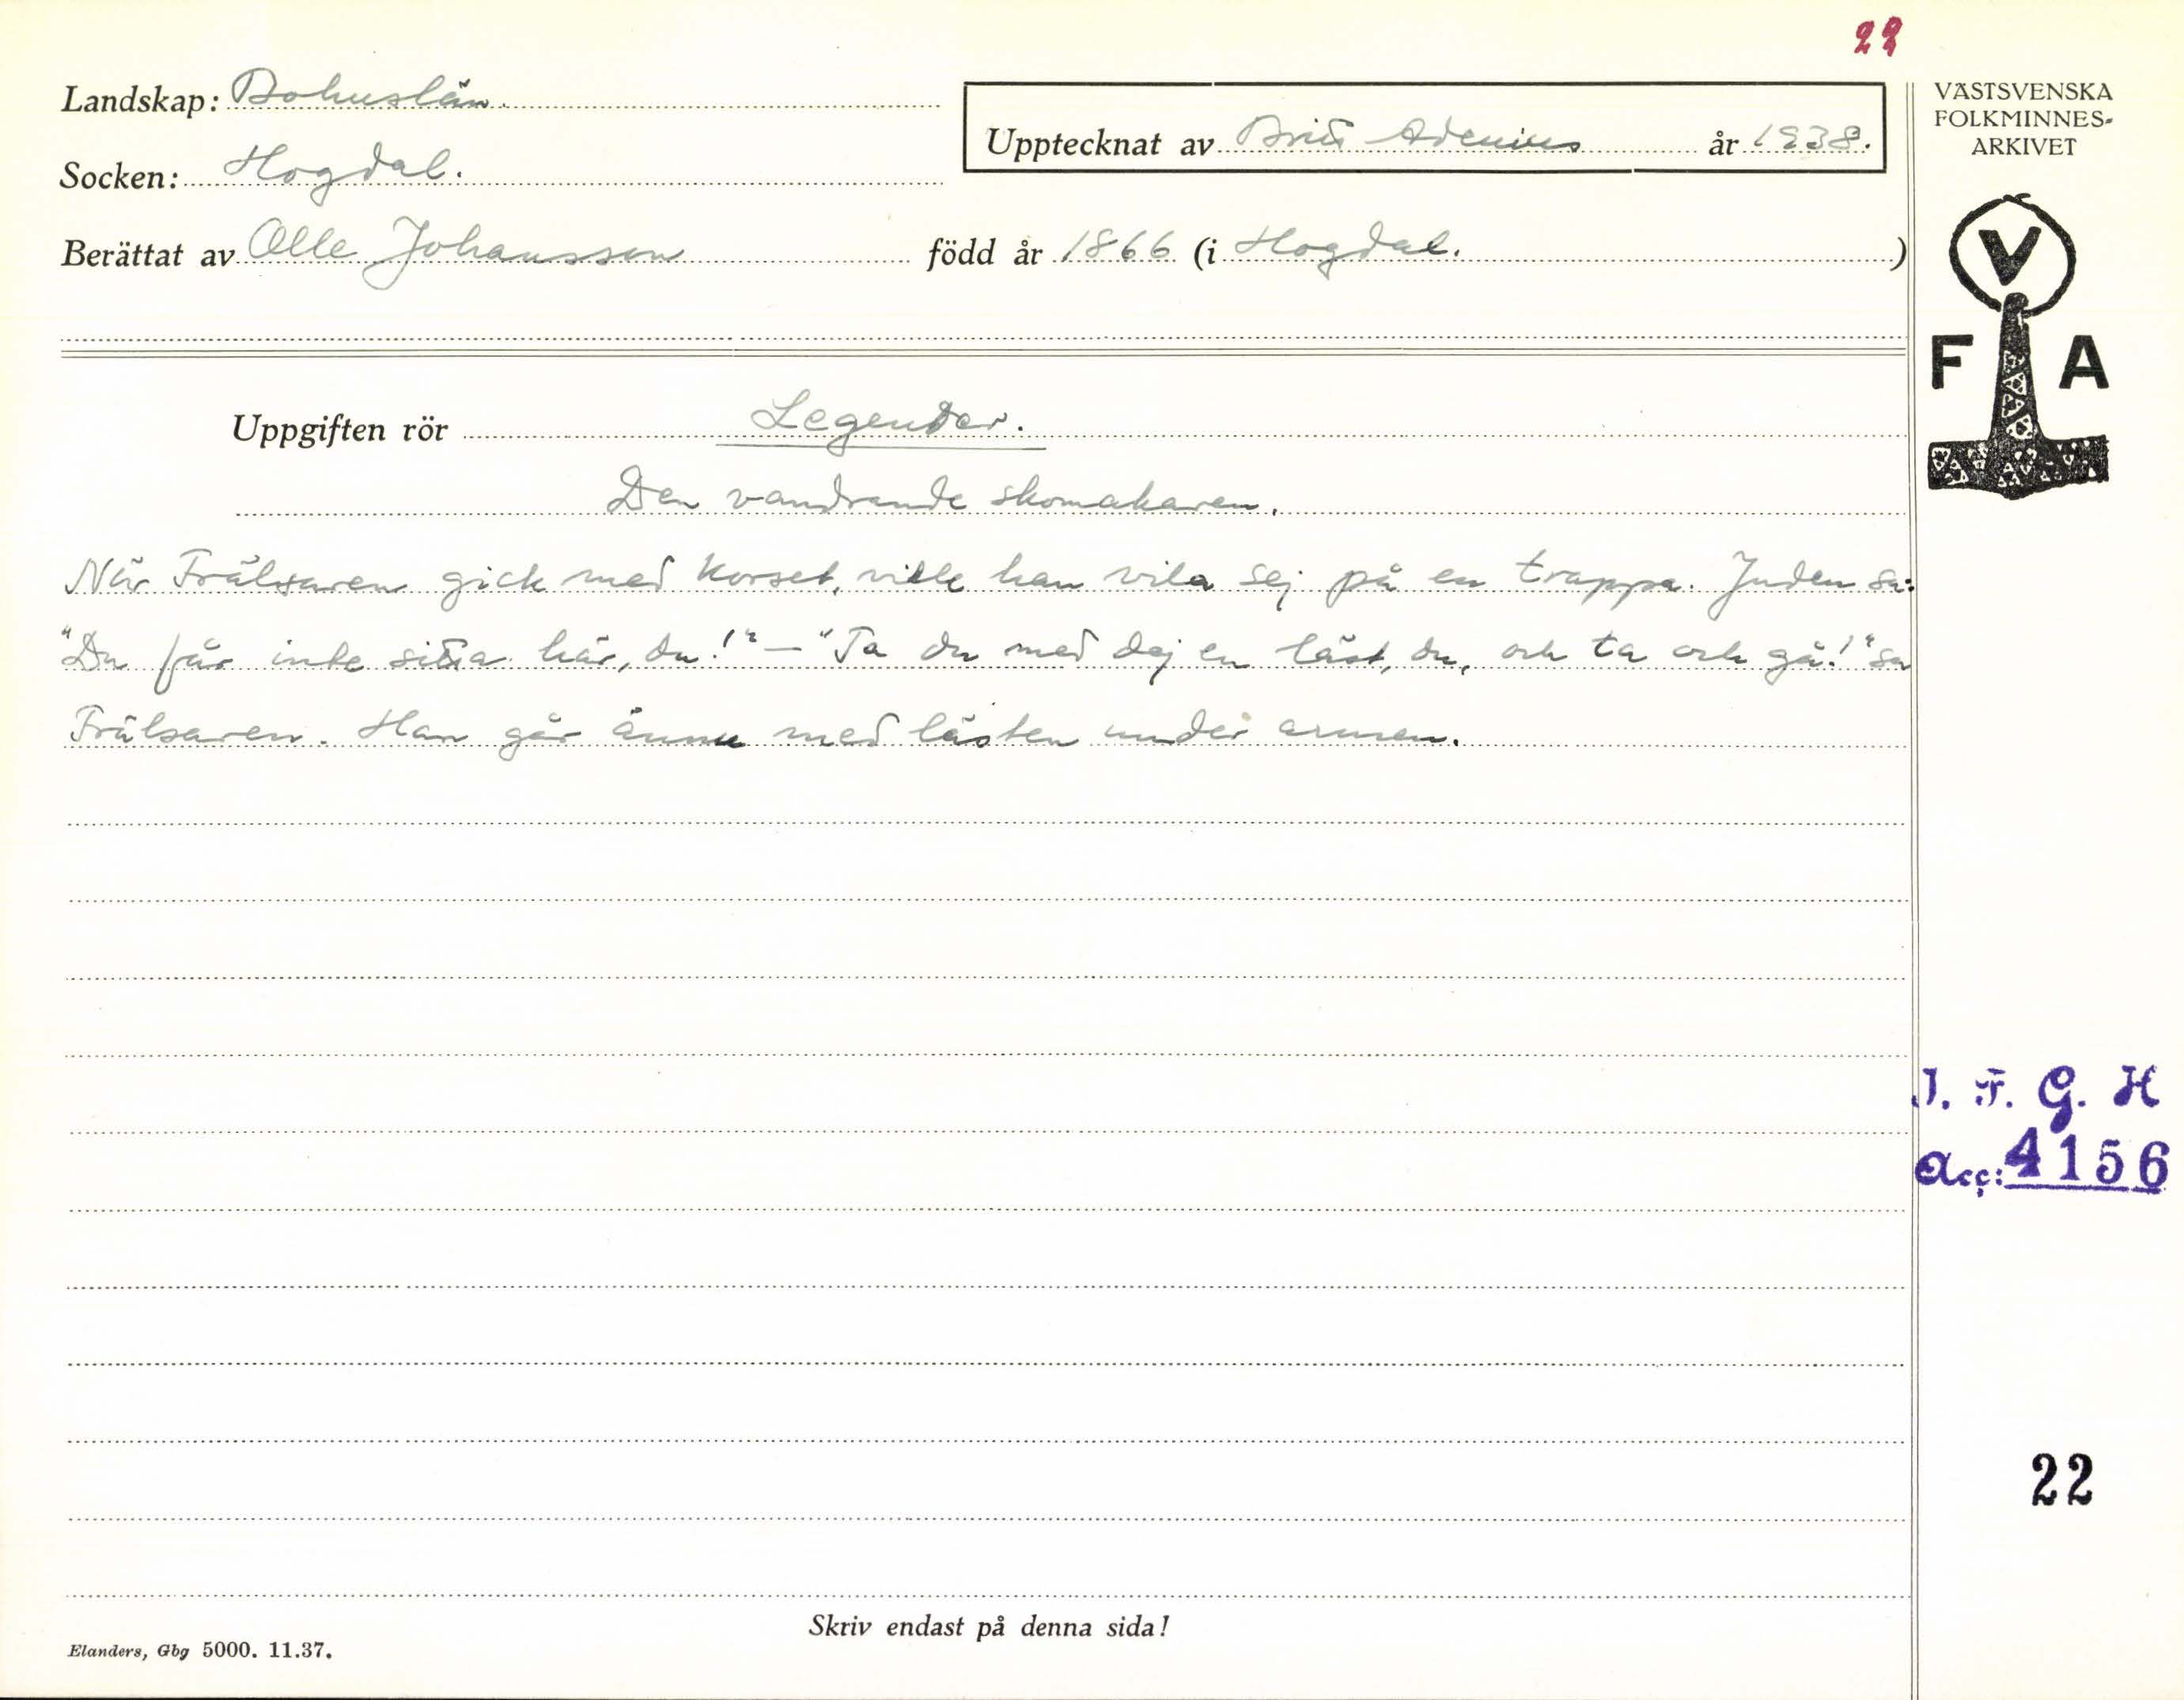 22
Landskap: Bohuslän.
Upptecknat av Britt Adenius år 1938.
VÄSTSVENSKA
FOLKMINNES-
ARKIVET
Socken: Hogdal.
Berättat av Olle Johansson född år 1866 (i Hogdal.)
V
F A
Uppgiften rör Legender.
Den vandrande skomakaren.
När Frälsaren gick med korset, ville han vila sej på en trappa. Juden sa:
"Du får inte sitta här, du!" – "Ta du med dej en läst, du, och ta och gå!" sa
Frälsaren. Han går ännu med lästen under armen.
I. F. G. H
Acc: 4156
22
Skriv endast på denna sida!
Elanders, Gbg 5000. 11.37.